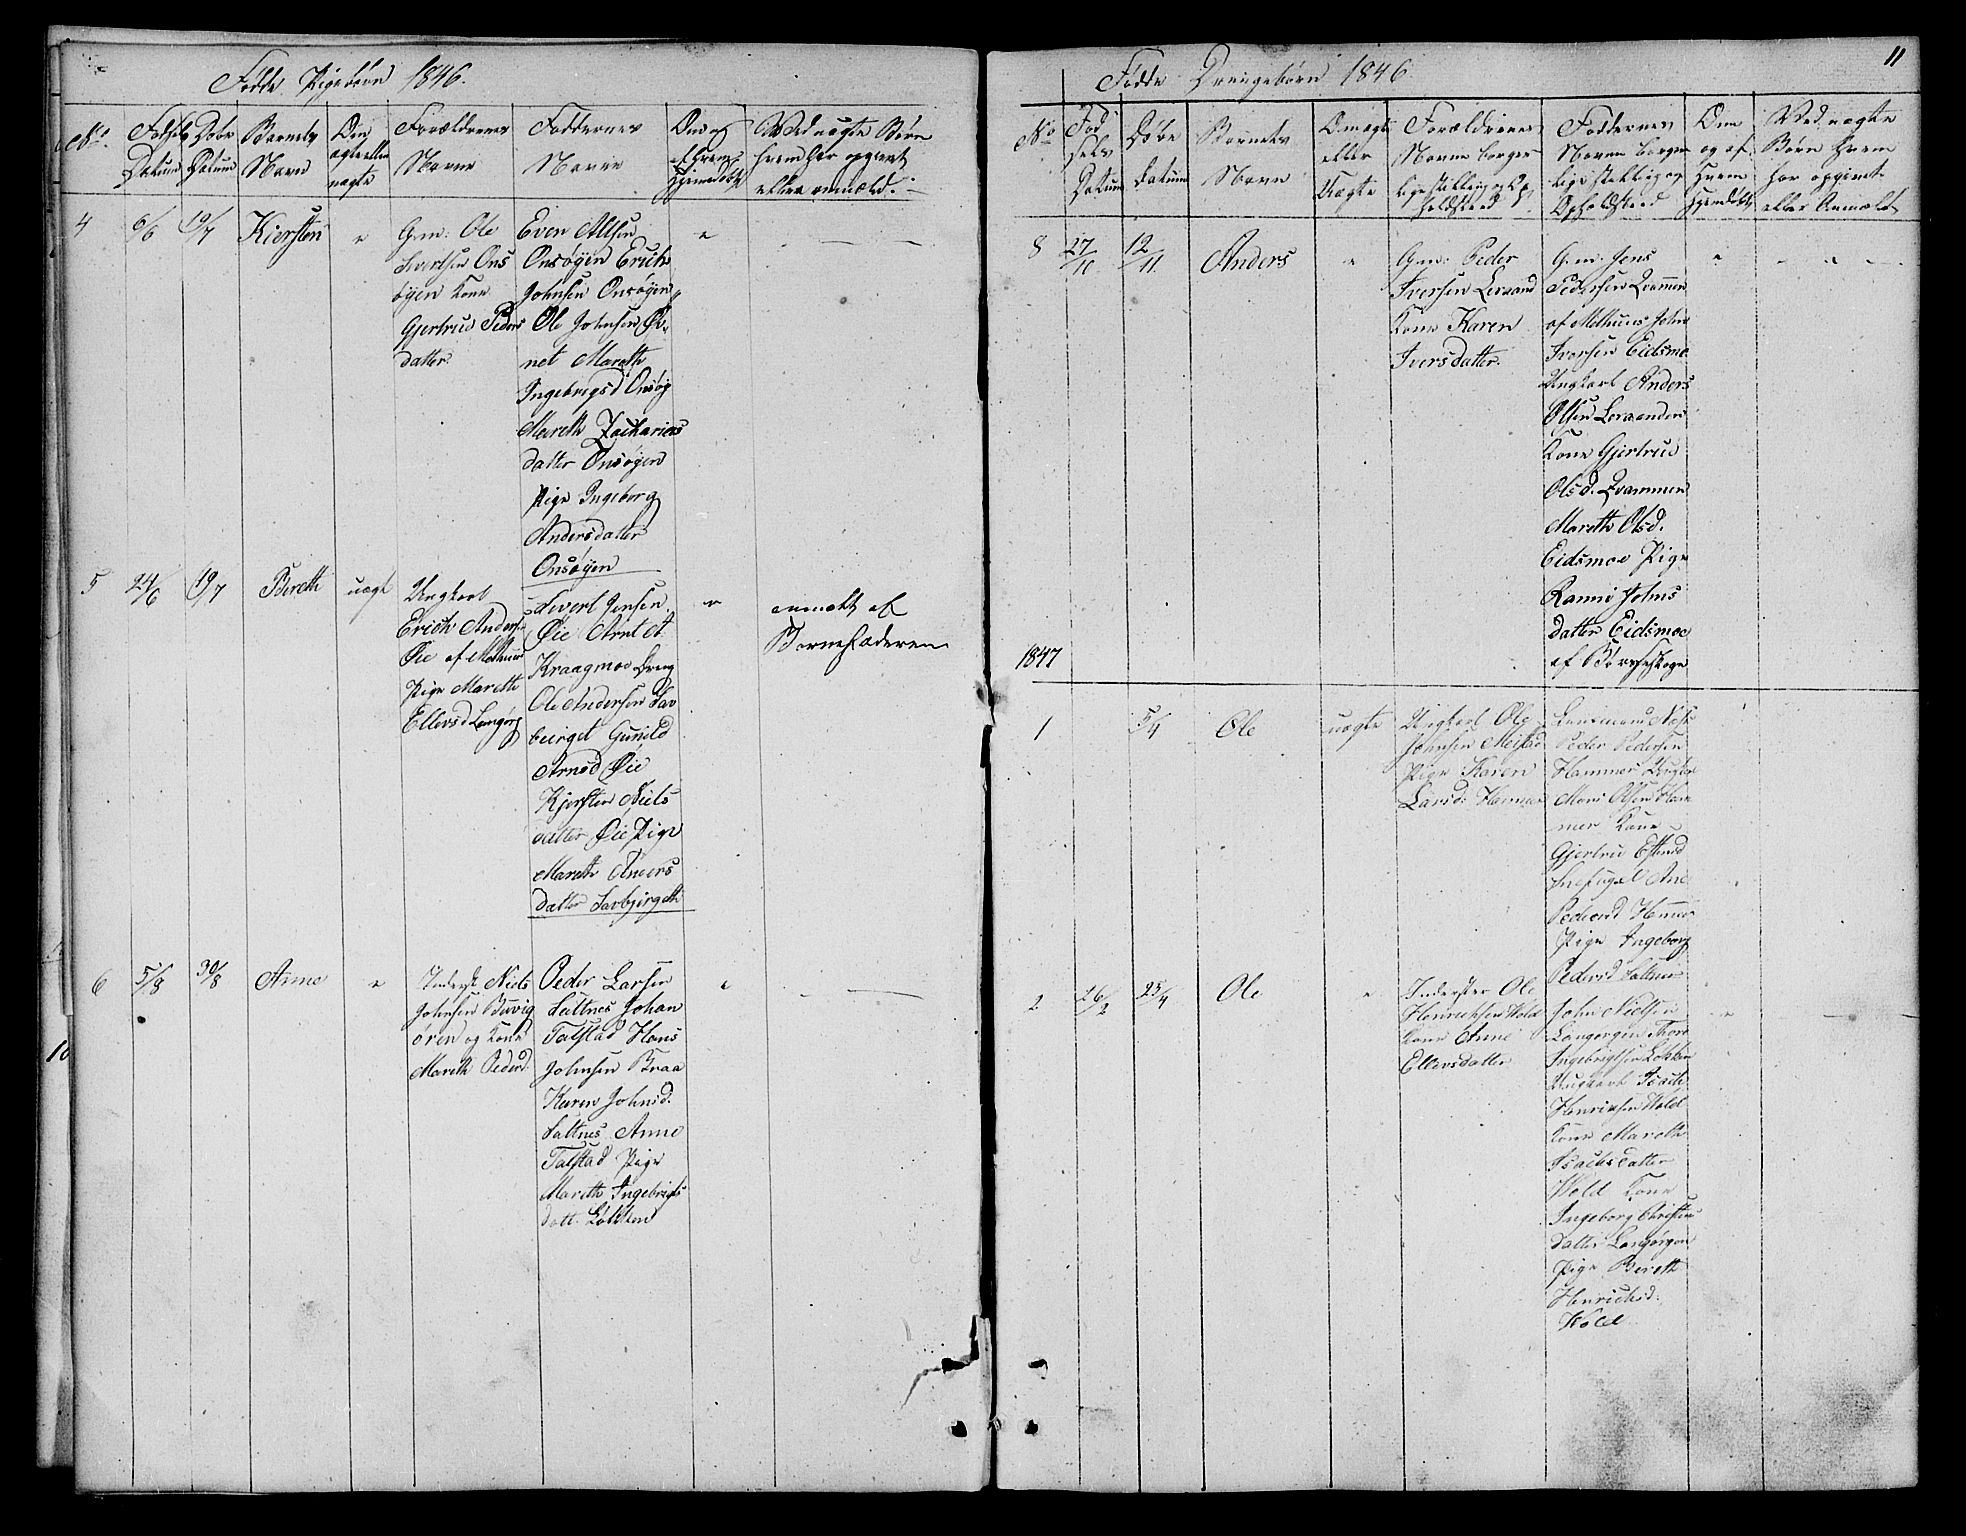 Fødte Pigebørn 1846.
No.
Fødsels
Datum
Døbe
Datum
Barnets
Navn
Om
ægte eller
uægte
Forældrenes
Navne
Faddernes
Navne
Om og
af hvem
Hjemmedøbt
Ved uægte Børn
hvem har opgivet
eller anmeldt
4
6/6
19/7
Kiersten
"
Gm: Ole
Sivertsen Ons
øyen Kone
Gjertrud Peders
datter
Even Allsen
Onsøyen Erich
Johnsen Onsøyen
Ole Johnsen
net Mareth
Ingebrigsd Onsøy
Mareth Zacharias
datter Onsøyen
Pige Ingeborg
Andersdatter
Onsøyen
"
5
24/6
19/7
Bereth
uægt
Ungkarl
Erich Anders
Øie af Melhuus
Pige Mareth
Ellevsd Langørg
Sivert Jensen
Øie Arnt A
Kraagmoe Dreng
Ole Andersen Sav
beirget Gunild
Arnsd Øie
Kjersten Niels
datter Øie Pige
Mareth Anders
datter Savbjirgeth
"
anmeldt af
Barnefaderen
6
5/8
30/8
Anne
"
Inderst Niels
Johnsen Buvig
ören og Kone
Mareth Pedersd
Peder Larsen
Saltnes Johan
Talstad Hans
Johnsen Braa
Karen Johnsd.
Saltnes Anne
Talstad Pige
Mareth Ingebrigts
datt. Løkken
"
10
11
Fødte Drengebørn 1846
No
Fød
sels
Datum
Døbe
Datum
Barnets
Navn
Om ægte
eller
Uægte
Forældrenes
Navne borger
lige stilling og Op
holdsted
Faddernes
Navne borger
lige stilling og
Opholdsted
Om
og af
Hvem
Hjemdøbt
Ved uægte
Børn hvem
har opgivet
eller Anmeldt
8
27/10
12/11
Anders
"
Gm: Peder
Iversen Leraand
Kone Karen
Iversdatter.
Gm: Jens
Pedersen Qvammen
af Melhuus John
Iversen Eidsmo
Ungkarl Anders
Olsen Leraanden
Kone Gjertrud
Olsd. Qvammen
Mareth Olsd.
Eidsmoe Pige
Rannei Johns
datter Eidsmoe
af Børseskogn
"
1847
1
5/4
Ole
uægte
Ungkarl Ole
Johnsen Meistad
Pige Karen
Larsd: Hammer
Peder Pedersen
Hammer Ungkarl
Olsen Ham
mer Kone
Gjertru Estensd
Ane
Pedersd Hammer
Pige Ingeborg
Pedersd Saltnes
2
26/2
25/4
Ole
"
Inderster Ole
Henrichsen Wold
Kone Anne
Ellevsdatter
John Nielsen
Langørgen Thore
Ingebrigtsen Løkken
Ungkarl Isach
Henrichsen Wold
Kone Mareth
Isachsdatter
Wold Kone
Ingeborg Christens
datter Langørgen
Pige Bereth
Henrichsd:
Wold
"